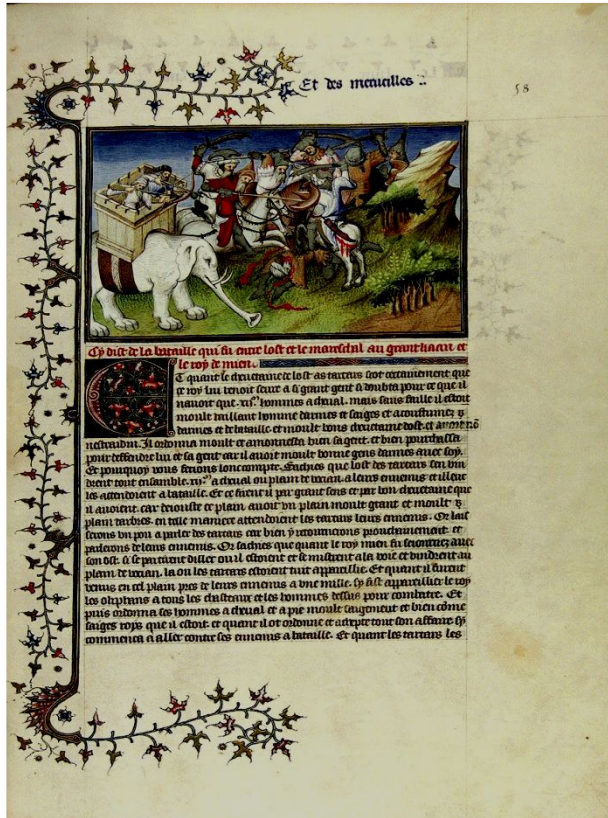 Et des merueilles
58
Cy dist de la bataille qui fu entre lost et le mareschal au grant kaan et
le roy de mien.
Et quant le cheuetaine de lost as tartars scot certainement que
ce roy lui venoit seure a si grant gent si doubta pour ce que il
nauoit que .xij.m hommes a cheual. mais sans faille il estoit
moult vaillant homme darmes et saiges et acoustumez
darmes et de bataille. et moult bons cheuetaine dost. et auoit nō
nestraidin. Il ordonna moult et amonnesta bien sa gent. et bien pourchassa
pour deffendre lui et sa gent car il auoit moult bonne gens darmes auec soy.
Et pourquoy vous ferons lonc compte. Sachies que lost des tartars sen vin
drent tout ensamble .xij.m a cheual ou plain de vocian. a leurs ennemis et illeuc
les attendoient a bataille. Et ce firent il par grant sens et par bon cheuetaine que
il auoient. car dejouste ce plain auoit vn plain moult grant et moult
plain darbres. en telle maniere attendoient les tartars leurs ennemis. Or lais
serons vn pou a parler des tartars car bien y retournerons prochainement. et
parlerons de leurs ennemis. Or sachies que quant le roy mien fu seiournez auec
son ost. si se partirent dillec ou il estoient et se mistrent a la voie et vindrent au
plain de vocian. la ou les tartars estoient tuit appareillie. Et quant il furent
venus en cel plain pres de leurs ennemis a vne mille. sy fist appareillier le roy
les oliphans a tous les chasteaux et les hommes dessus pour combatre. Et
puis ordonna ses hommes a cheual et a pie moult saigement et bien cōme
saiges roys que il estoit. et quant il ot ordonne et adrepte tout son affaire sy
commenca a aller contre ses ennemis a bataille. Et quant les tartars les